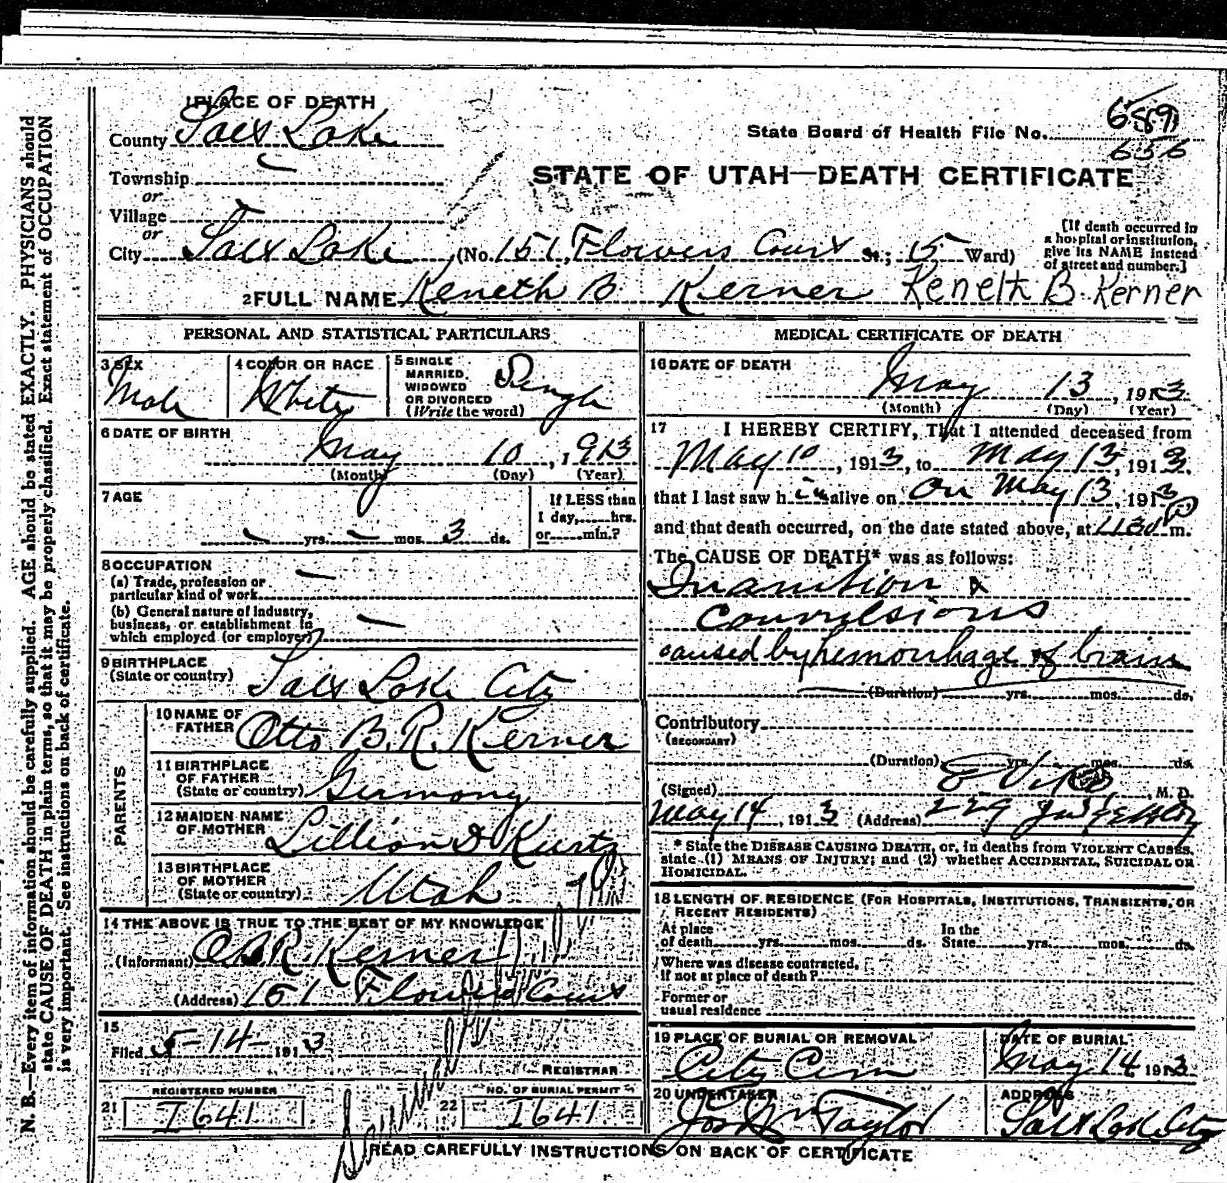 1 PLACE OF DEATH
County Salt Lake
State Board of Health File No. 689
656
Township
STATE OF UTAH—DEATH CERTIFICATE
or
Village
or
City Salt Lake (No. 151, Flowers Court St.; 15 Ward)
[If death occurred in a hospital or institution, give its NAME instead of street and number.]
2 FULL NAME Keneth B Kerner Keneth B. Kerner
PERSONAL AND STATISTICAL PARTICULARS
3 SEX
Male
4 COLOR OR RACE
White
5 SINGLE
MARRIED,
WIDOWED
OR DIVORCED
(Write the word)
Single
6 DATE OF BIRTH
May 10, 1913
(Month) (Day) (Year)
7 AGE
yrs. mos. 3 ds.
If LESS than
1 day,......hrs.
or......min.?
8 OCCUPATION
(a) Trade, profession or
particular kind of work
(b) General nature of industry,
business, or establishment in
which employed (or employer)
9 BIRTHPLACE
(State or country) Salt Lake City
PARENTS
10 NAME OF
FATHER Otto B. R. Kerner
11 BIRTHPLACE
OF FATHER
(State or country) Germany
12 MAIDEN NAME
OF MOTHER Lillian D Kurtz
13 BIRTHPLACE
OF MOTHER
(State or country) Utah
14 THE ABOVE IS TRUE TO THE BEST OF MY KNOWLEDGE
(Informant) O B R. Kerner
(Address) 151 Flowers Court
15
Filed 5-14- 1913
REGISTRAR
REGISTERED NUMBER
21 I641
NO. OF BURIAL PERMIT
22 I641
MEDICAL CERTIFICATE OF DEATH
16 DATE OF DEATH
May 13, 1913
(Month) (Day) (Year)
17 I HEREBY CERTIFY, That I attended deceased from
May 10, 1913, to May 13, 1913.
that I last saw him alive on on May 13, 1913
and that death occurred, on the date stated above, at 1130 P m.
The CAUSE OF DEATH* was as follows:
Inanition &
convulsions
caused by hemorrhage of brain
(Duration) yrs. mos. ds.
Contributory
(SECONDARY)
(Duration) yrs. mos. ds.
(Signed) M. D.
May 14, 1913 (Address) 229
* State the DISEASE CAUSING DEATH, or, in deaths from VIOLENT CAUSES,
state (1) MEANS OF INJURY; and (2) whether ACCIDENTAL, SUICIDAL OR
HOMICIDAL.
18 LENGTH OF RESIDENCE (FOR HOSPITALS, INSTITUTIONS, TRANSIENTS, OR
RECENT RESIDENTS)
At place
of death yrs. mos. ds.
In the
State yrs. mos. ds.
Where was disease contracted,
if not at place of death?
Former or
usual residence
19 PLACE OF BURIAL OR REMOVAL
City Cem
DATE OF BURIAL
May 14 1913
20 UNDERTAKER
Jos Wm Taylor
ADDRESS
Salt Lake City
READ CAREFULLY INSTRUCTIONS ON BACK OF CERTIFICATE
N. B.—Every item of information should be carefully supplied. AGE should be stated EXACTLY. PHYSICIANS should
state CAUSE OF DEATH in plain terms, so that it may be properly classified. Exact statement of OCCUPATION
is very important. See instructions on back of certificate.